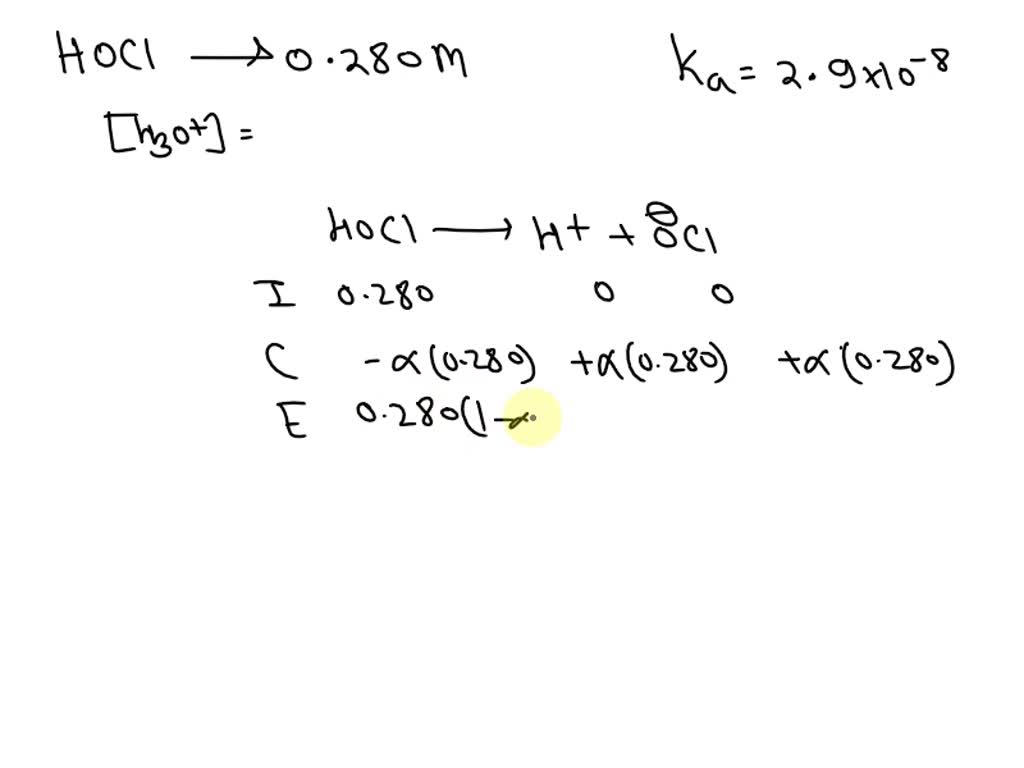 HOCl ⟶ 0.280 M Ka = 2.9×10⁻⁸
[h3o+] =
HOCl ⟶ H+ + ⊖OCl
I 0.280 0 0
C -α(0.280) +α(0.280) +α(0.280)
E 0.280(1-α